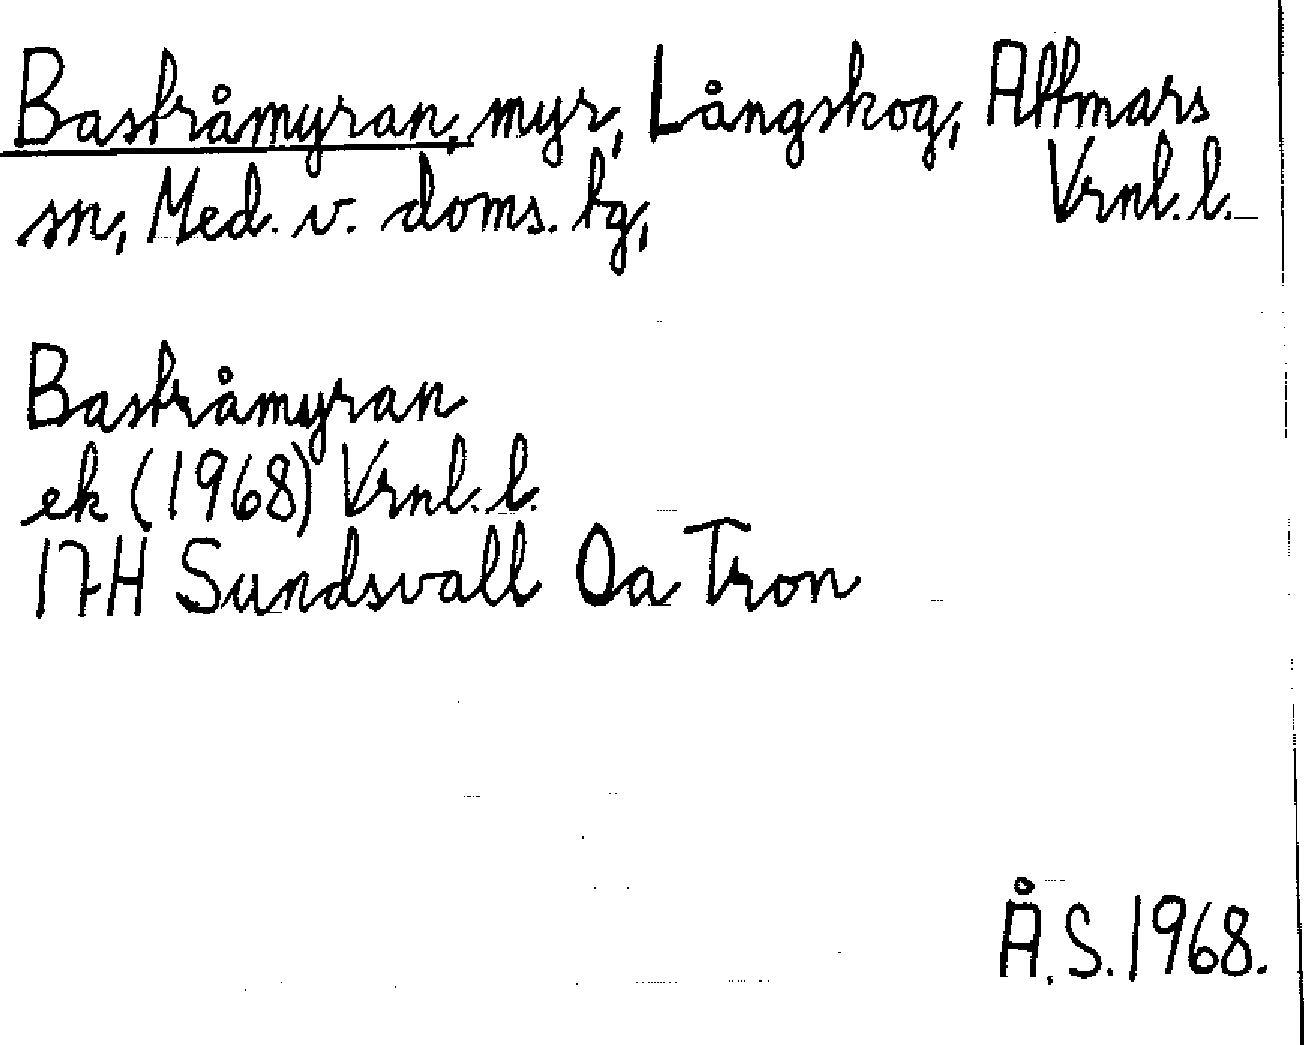 Bastråmyran, myr, Långskog, Attmars
sn, Med. v. doms. lg, Vrnl. l.
Bastråmyran
ek (1968) Vrnl. l.
17H Sundsvall Oa Tron
Å. S. 1968.